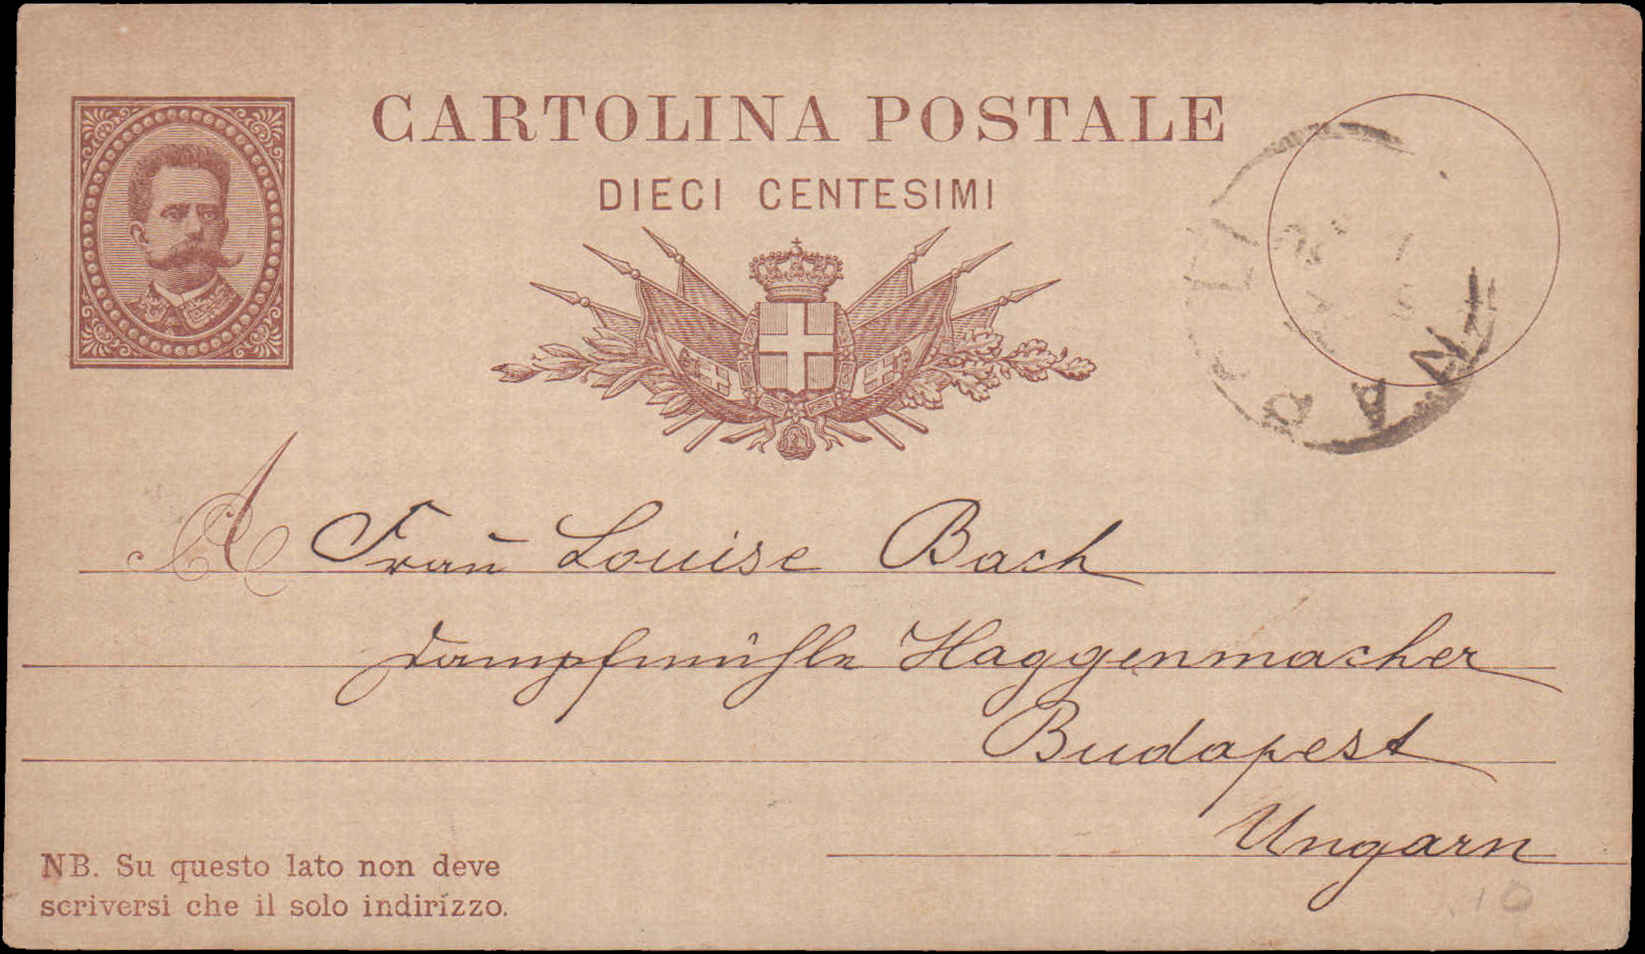 CARTOLINA POSTALE
DIECI CENTESIMI
NAPOLI
A Frau Louise Bach
Dampfmühle Haggenmacher
Budapest
Ungarn
NB. Su questo lato non deve
scriversi che il solo indirizzo.
10